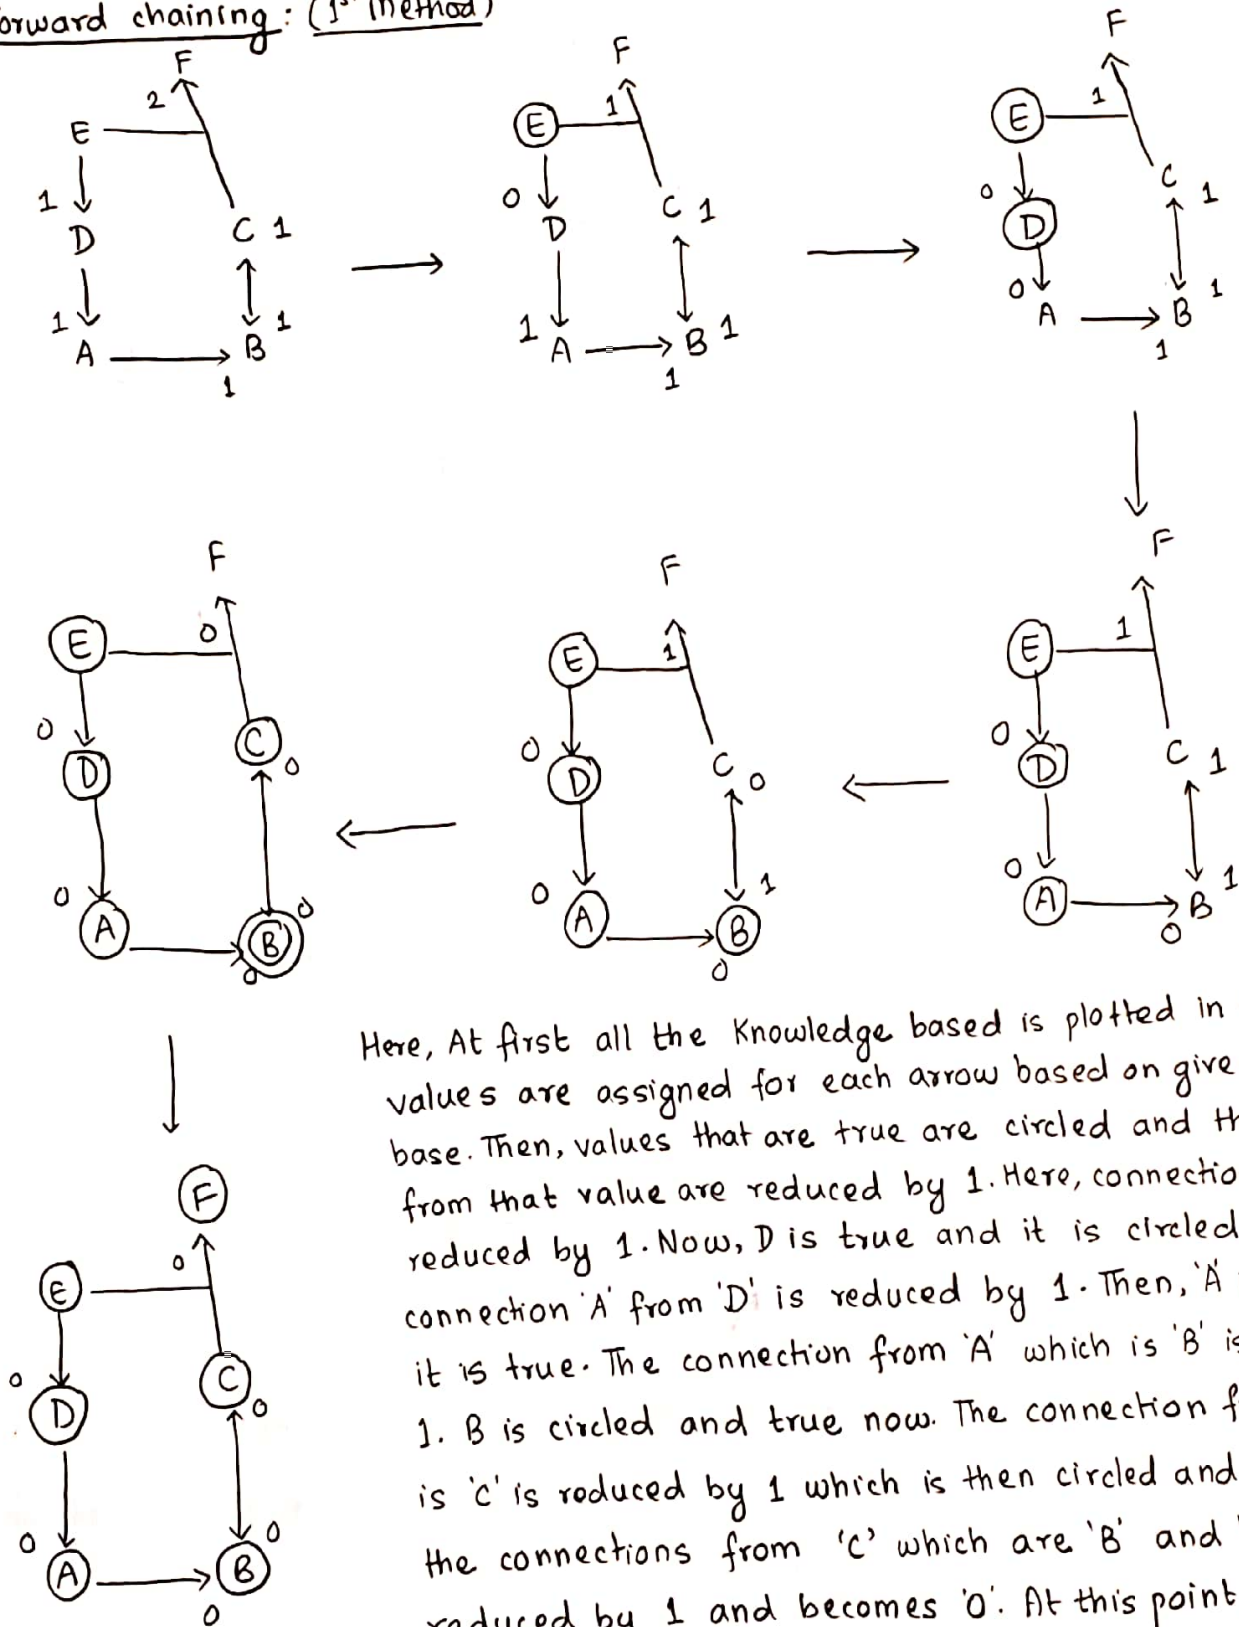 orward chaining: (1st Method)
F
2
E
1
D
C 1
1
1
A
B
1
F
E
1
0
D
C 1
1
A
B 1
1
F
E
1
0
D
C 1
0
A
B 1
1
F
E
0
0
D
C
0
0
A
B
0
0
F
E
1
0
D
C
0
0
A
B
1
0
F
E
1
0
D
C 1
0
A
B
1
0
Here, At first all the Knowledge based is plotted in
values are assigned for each arrow based on give
base. Then, values that are true are circled and th
from that value are reduced by 1. Here, connectio
reduced by 1. Now, D is true and it is circled
connection 'A' from 'D' is reduced by 1. Then, 'A'
it is true. The connection from 'A' which is 'B' is
1. B is circled and true now. The connection f
is 'c' is reduced by 1 which is then circled and
the connections from 'c' which are 'B' and '
reduced by 1 and becomes '0'. At this point
F
E
0
0
D
C
0
0
A
B
0
0